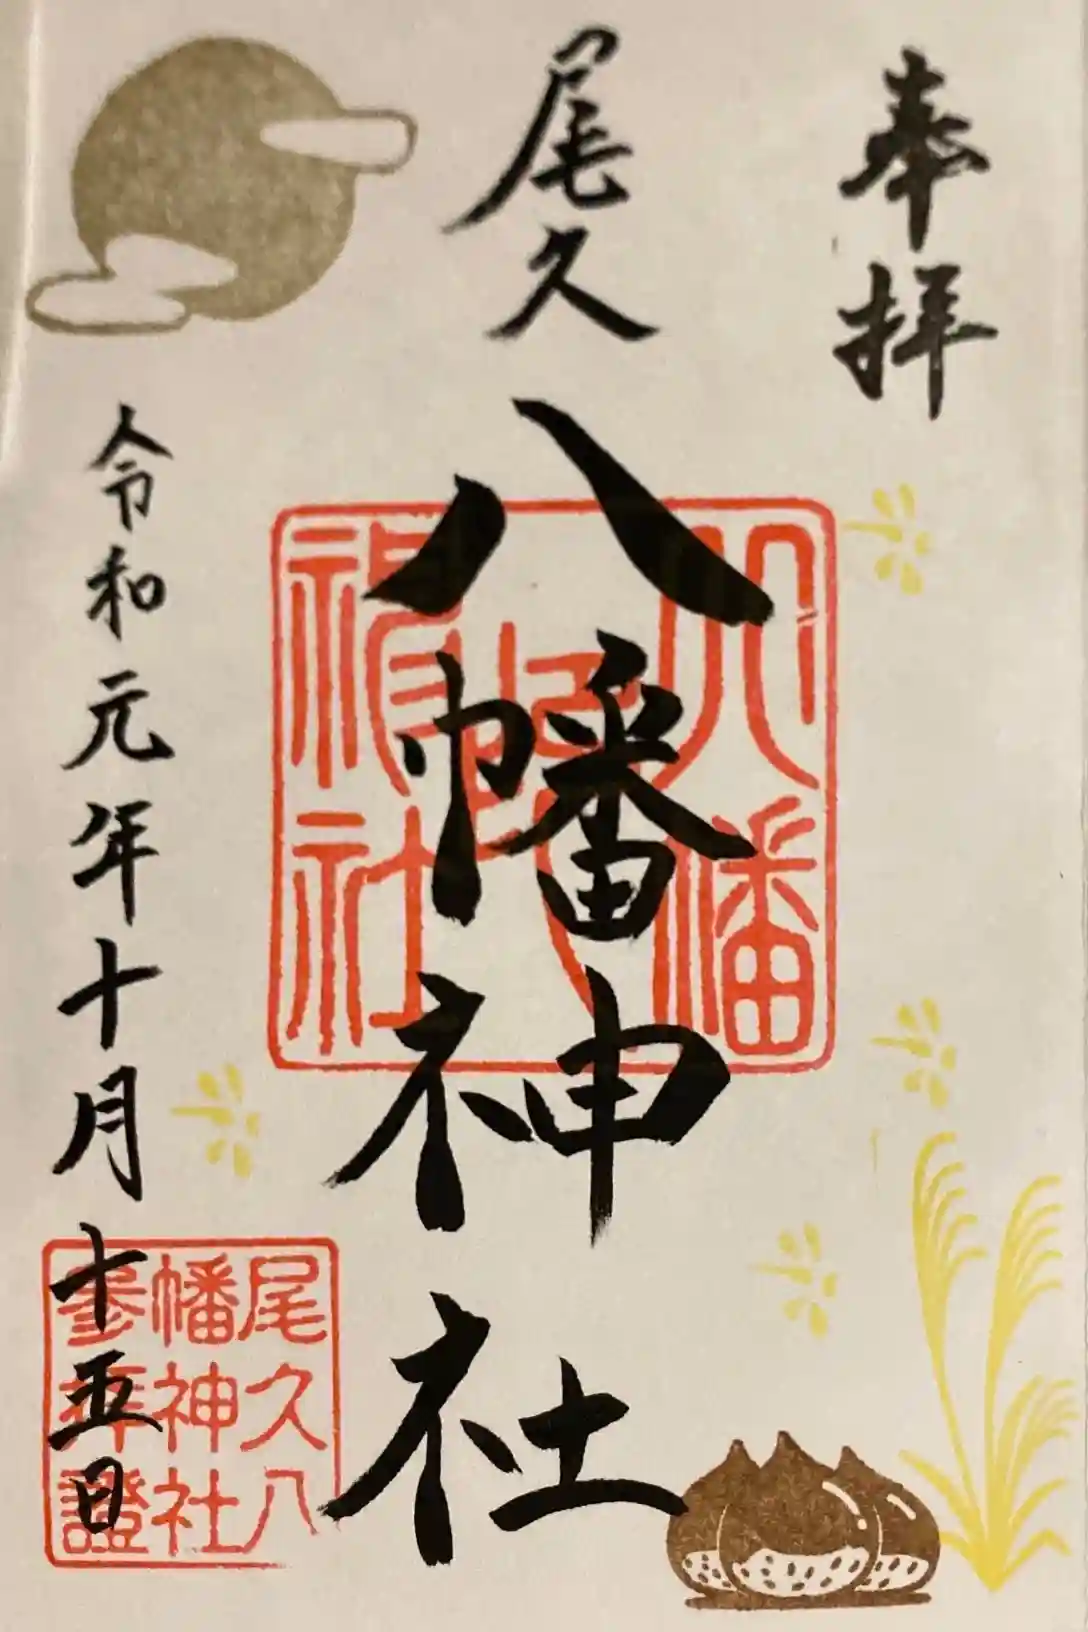 奉拝
尾久
八幡神社
令和元年十月十五日
八幡
神社
尾久八
幡神社
参拝證